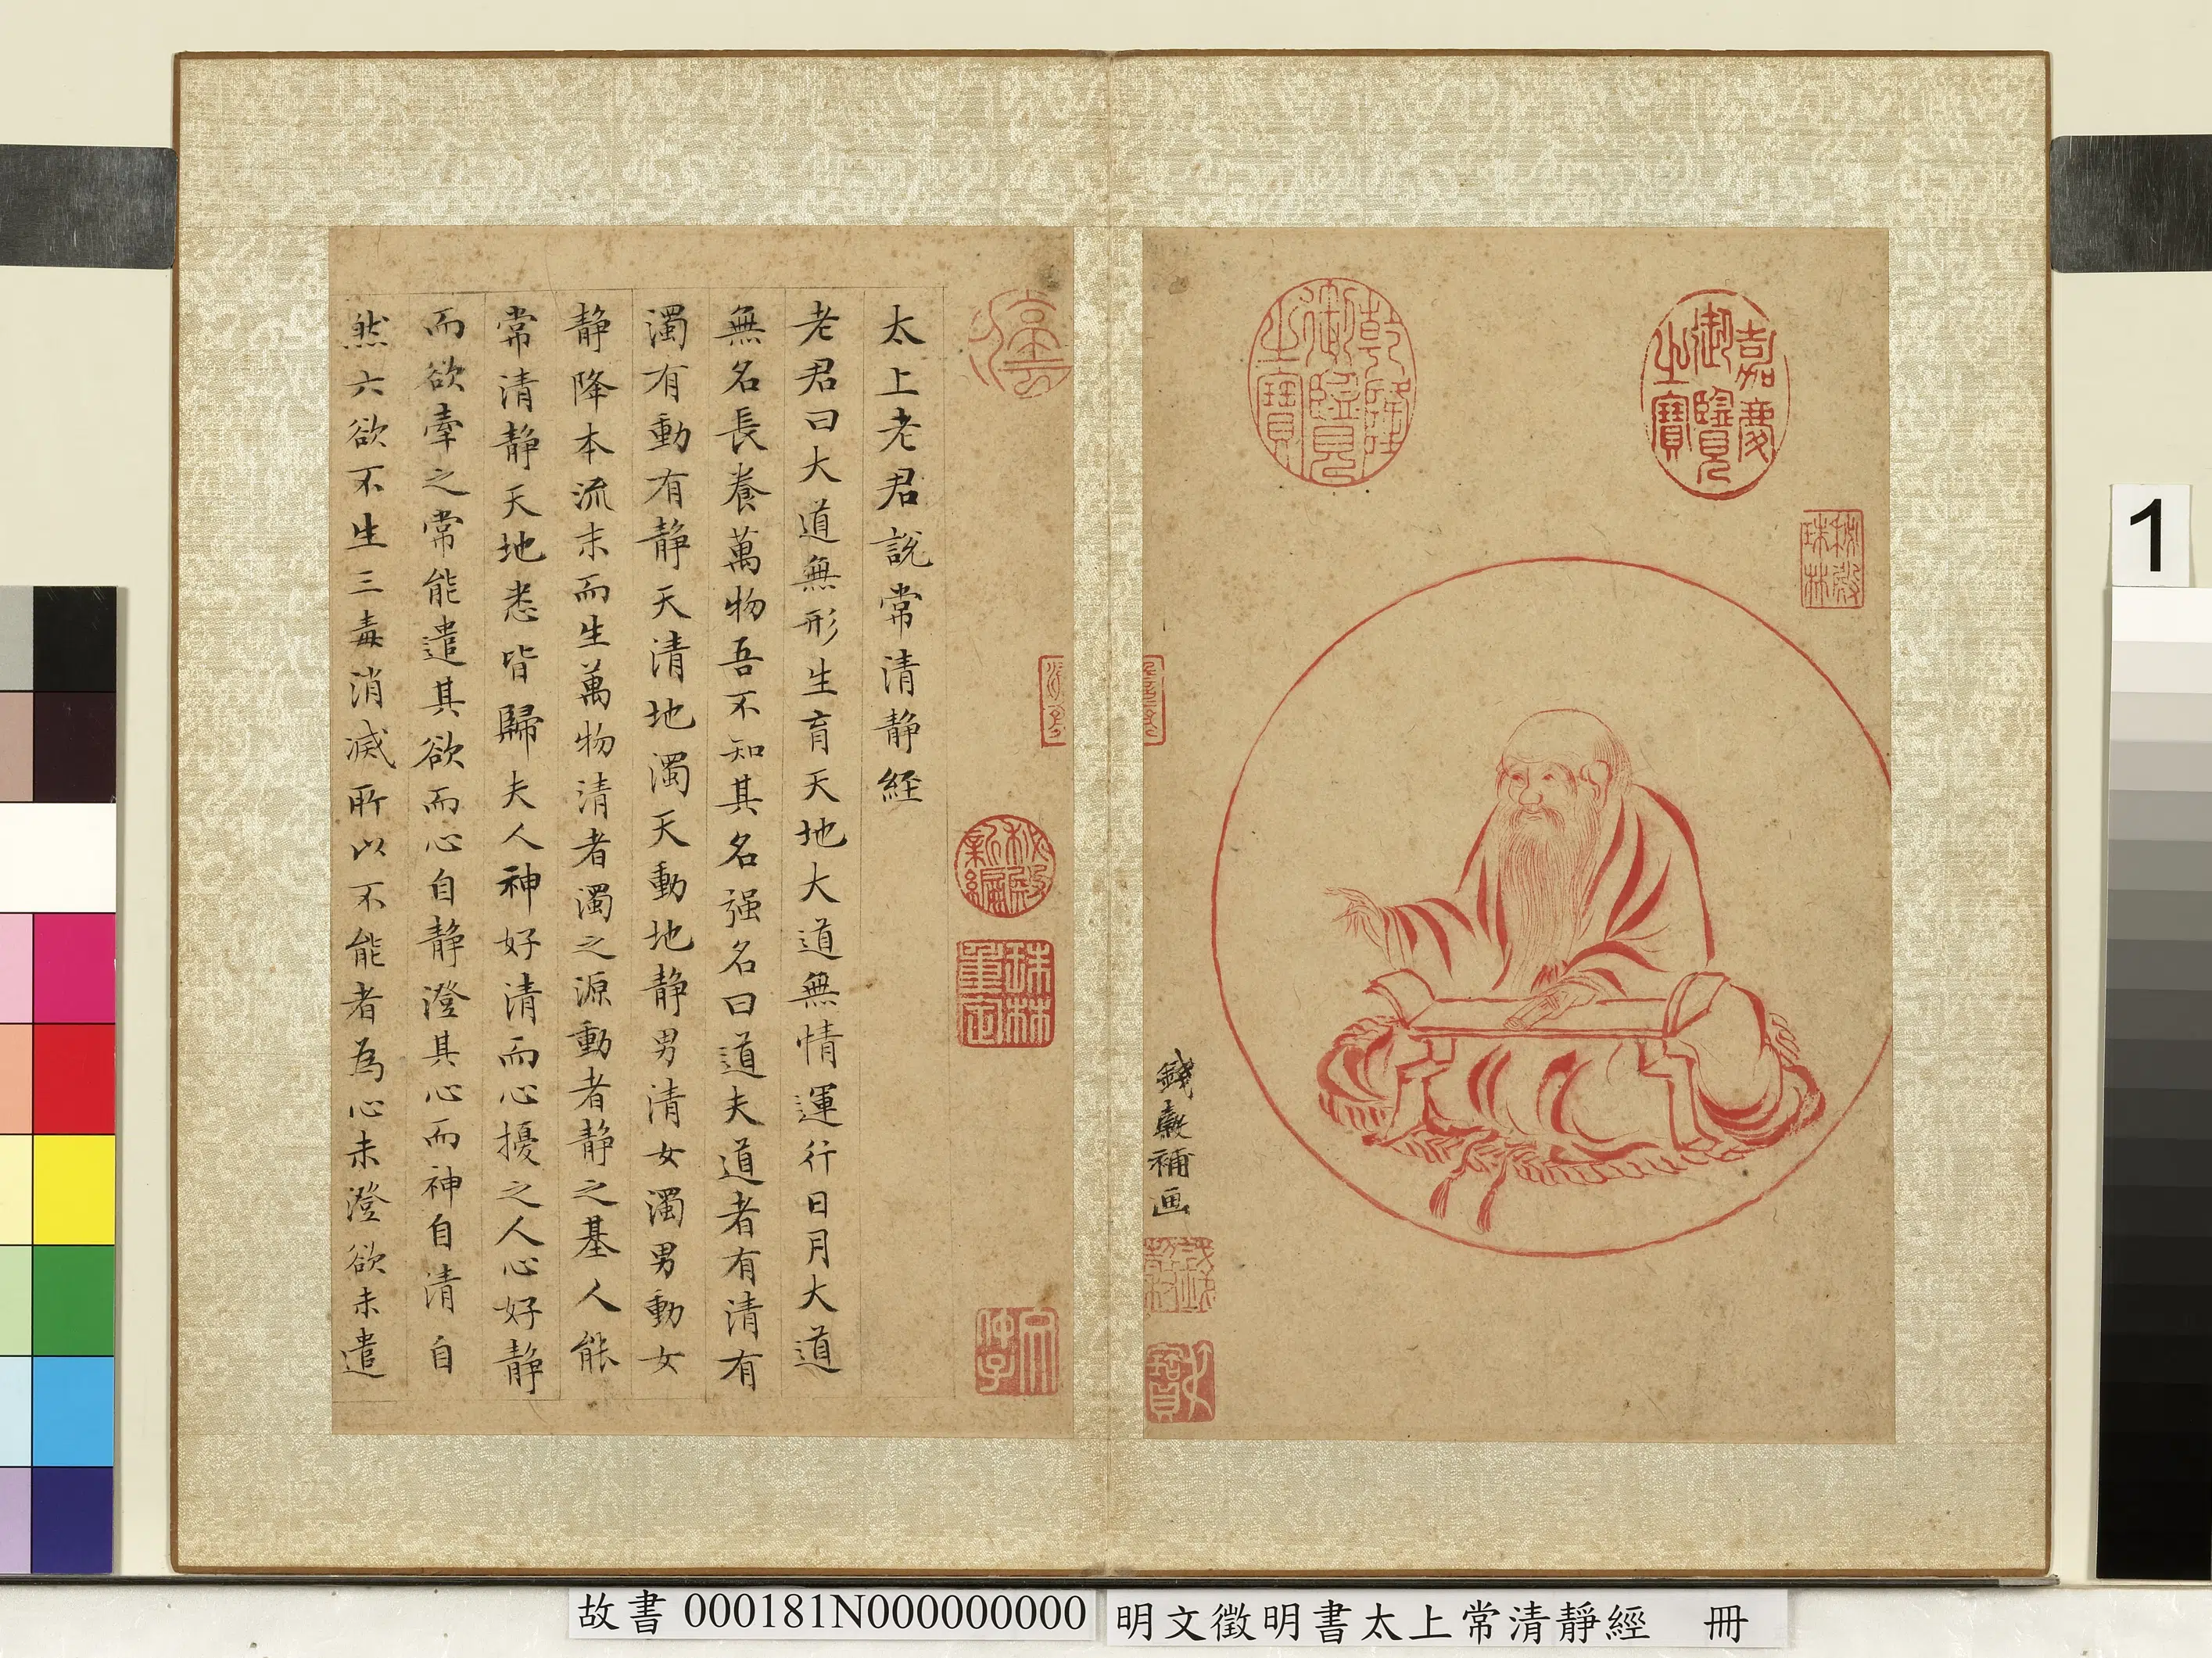 嘉慶御覽之寶
乾隆御覽之寶
秘殿珠林
錢穀補画
秘殿新編
珠林重定
太上老君說常清静経
老君曰大道無形生育天地大道無情運行日月大道
無名長養萬物吾不知其名强名曰道夫道者有清有
濁有動有静天清地濁天動地静男清女濁男動女
静降本流末而生萬物清者濁之源動者静之基人能
常清静天地悉皆歸夫人神好清而心擾之人心好静
而欲牽之常能遣其欲而心自静澄其心而神自清自
然六欲不生三毒消滅所以不能者為心未澄欲未遣
1
故書 000181N000000000
明文徵明書太上常清靜經 冊